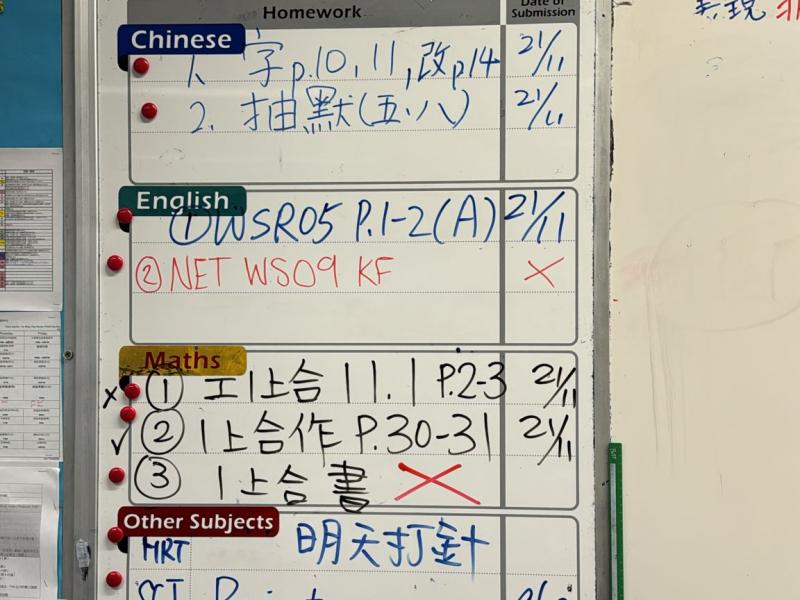 Homework Date of Submission
表現
Chinese
1. 字p.10,11,改p14 21/11
2. 抽默(五.八) 21/11
English
①WSR05 P.1-2(A) 21/11
②NET WS09 KF ×
Maths
× ① 工1上合 11.1 P.2-3 21/11
✓ ② 1上合作 P.30-31 21/11
③ 1上合書 ×
Other Subjects
MRT 明天打針